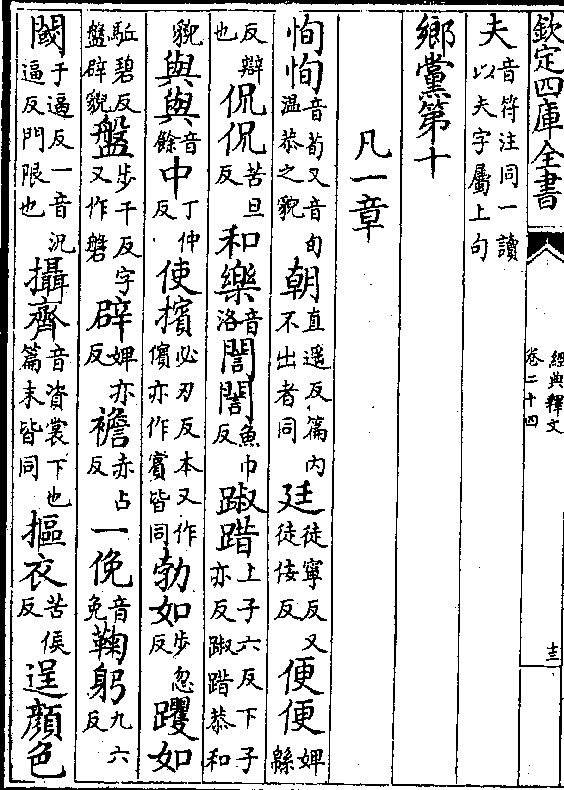 欽定四庫全書
經典釋文
卷二十四
十三
夫音符注同一讀以夫字屬上句
鄉黨第十
凡一章
恂恂音荀又音旬溫恭之貌朝直遥反篇内不出者同廷徒寧反又徒佞反便便婢緜
反辯也侃侃苦旦反和樂音洛誾誾魚巾反踧踖上子六反下子亦反踧踖恭和
貌與與音餘中丁仲反使擯必刃反本又作儐亦作賓皆同勃如步忽反躩如
駈碧反盤辟貌盤步干反字又作磐辟婢亦反襜赤占反一俛音免鞠躬九六反
閾于逼反一音況逼反門限也攝齊音資裳下也篇末皆同摳衣苦侯反逞顏色